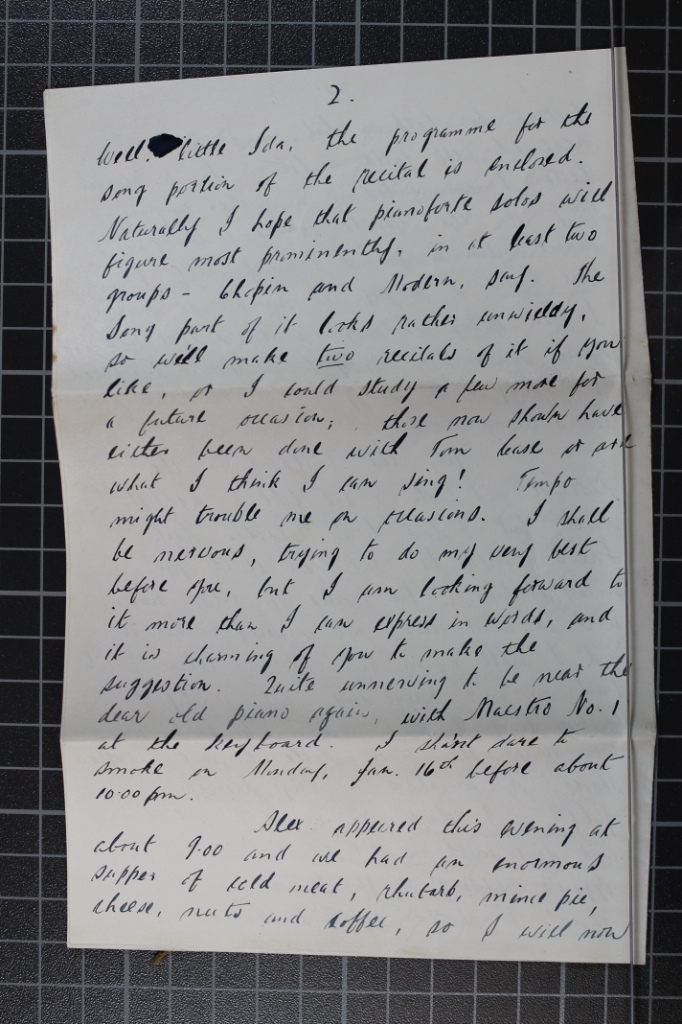 2.
Well, little Ida, the programme for the
song portion of the recital is enclosed.
Naturally I hope that pianoforte solos will
figure most prominently, in at least two
groups - Chopin and Modern, say. The
Song part of it looks rather unwieldy,
so will make two recitals of it if you
like, or I could study a few more for
a future occasion; those now shown have
either been done with Tom Case or are
what I think I can sing! Tempo
might trouble me on occasions. I shall
be nervous, trying to do my very best
before you, but I am looking forward to
it more than I can express in words, and
it is charming of you to make the
suggestion. Quite unnerving to be near the
dear old piano again, with Maestro No. 1
at the keyboard. I shan't dare to
smoke on Monday, Jan. 16th before about
10.00 pm.
Alex. appeared this evening at
about 9.00 and we had an enormous
supper of cold meat, rhubarb, mince pie,
cheese, nuts and coffee, so I will now